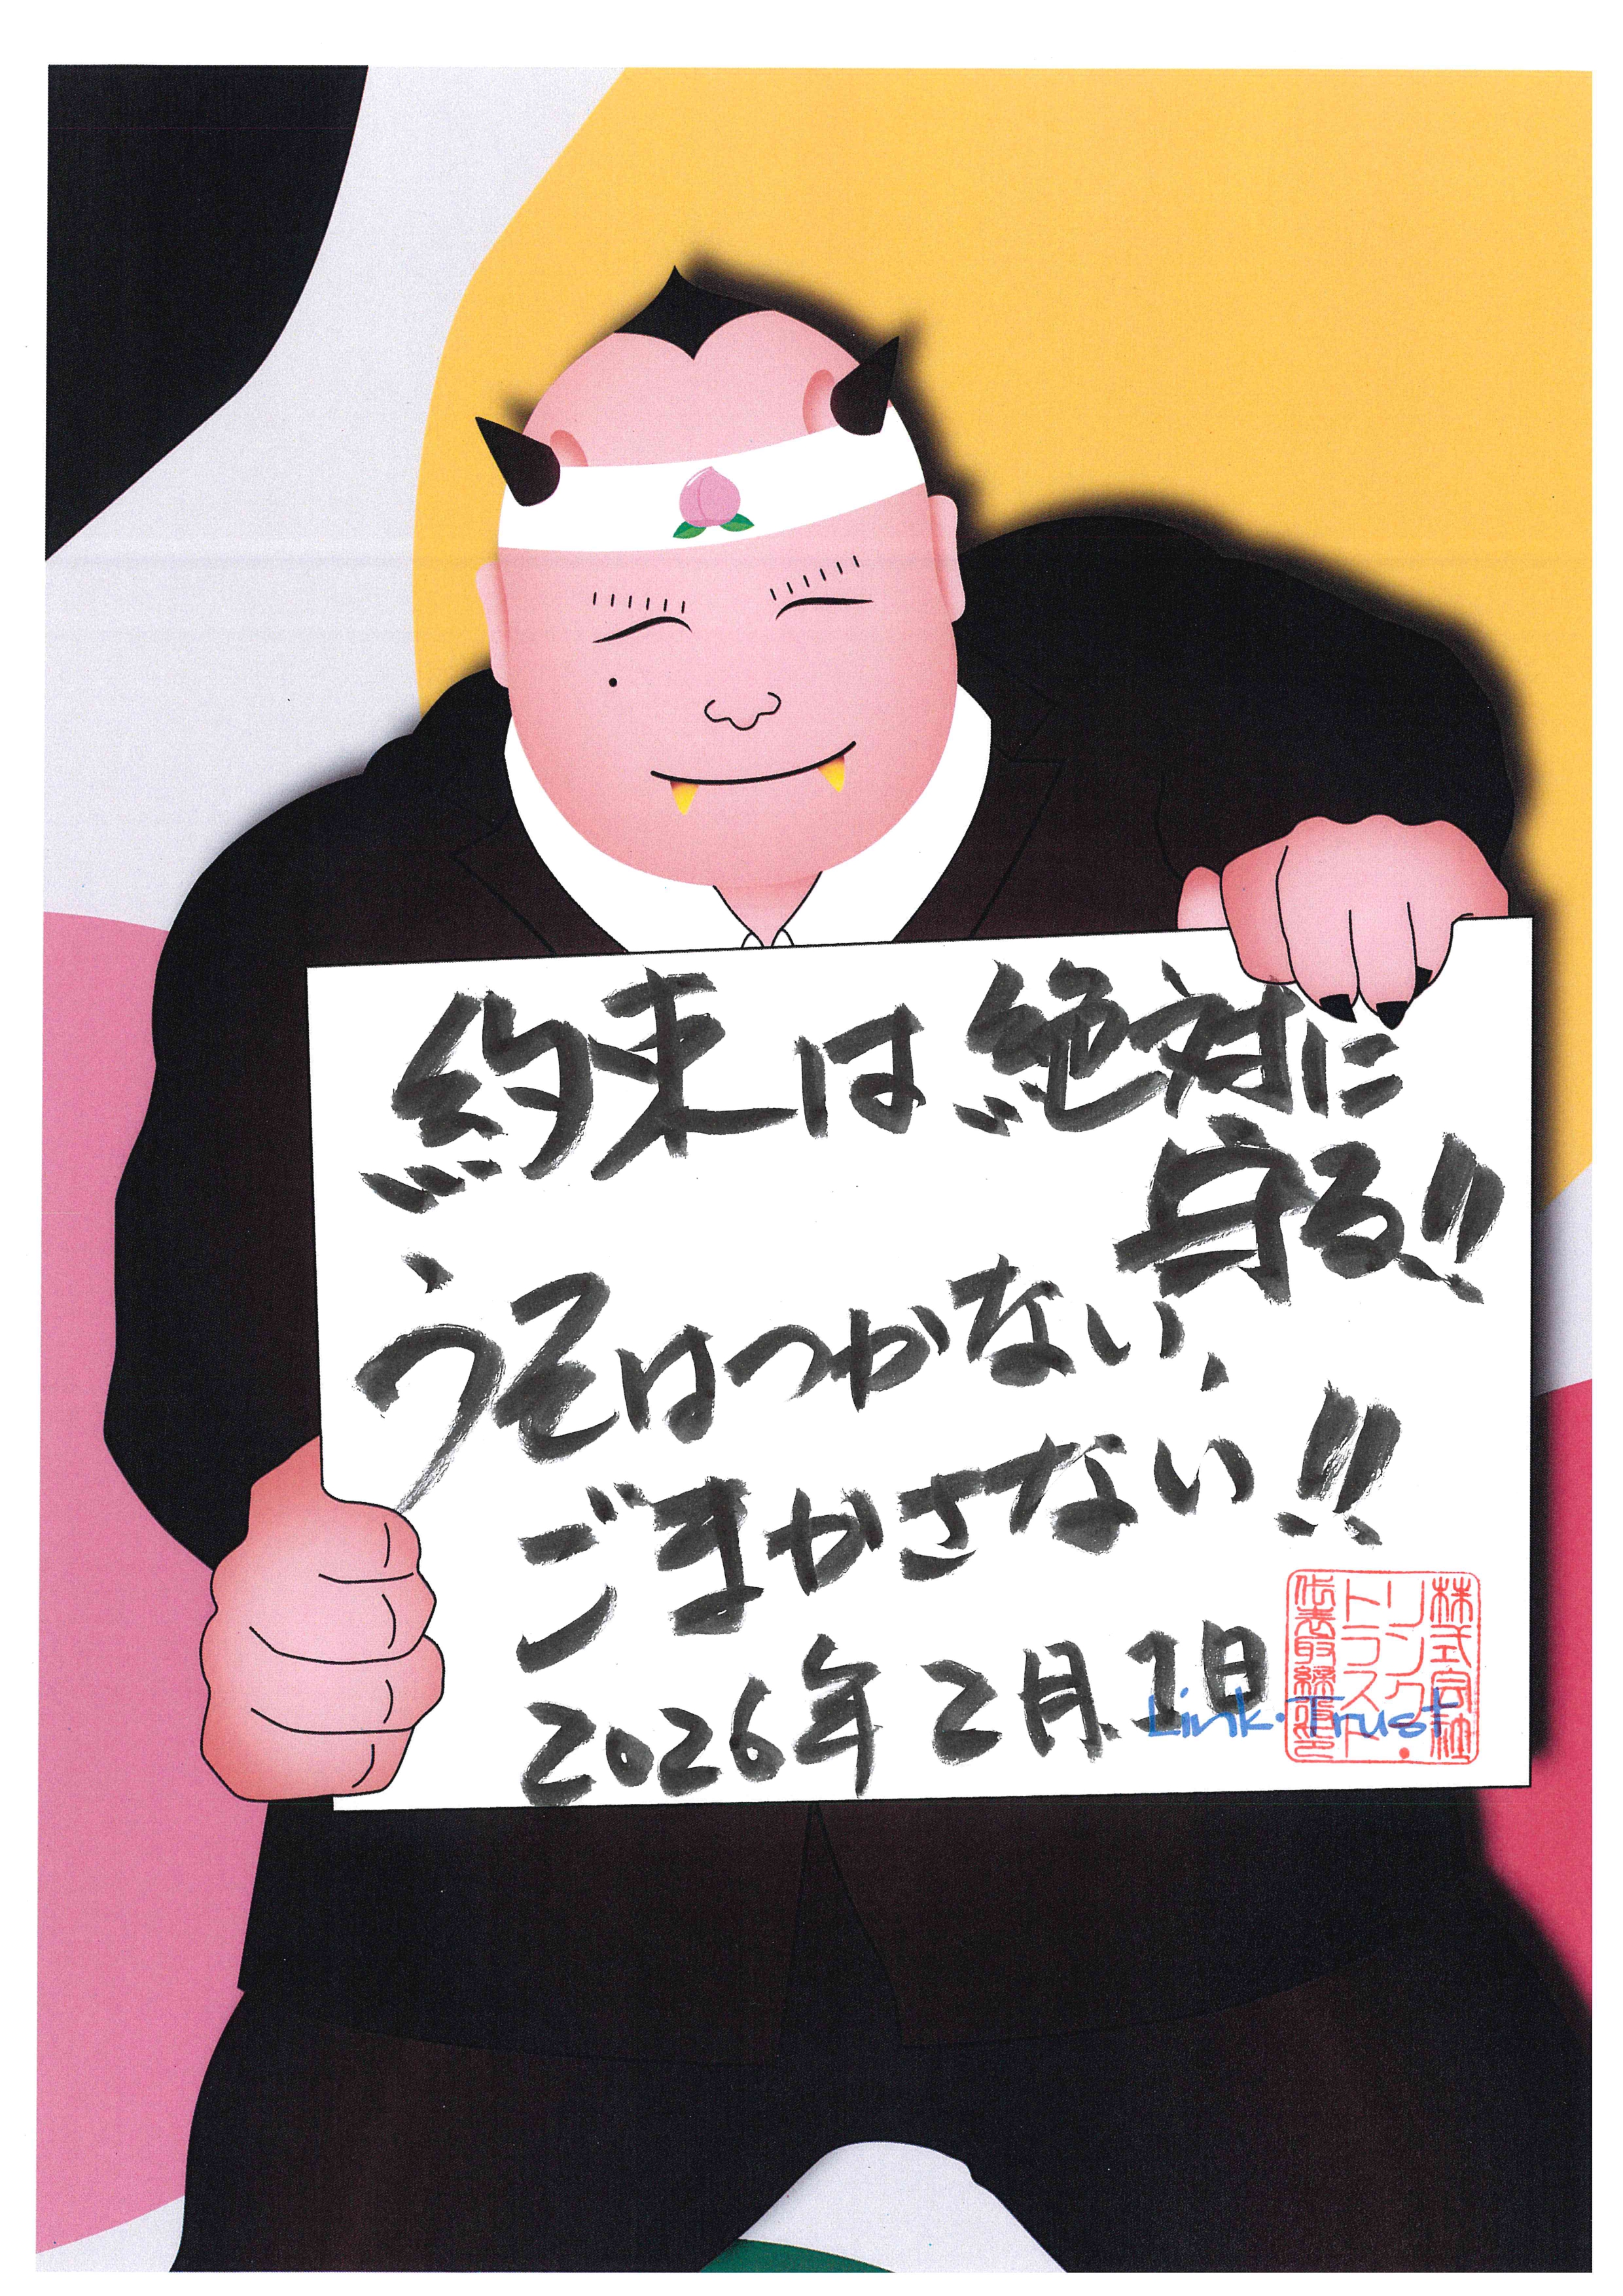 約束は絶対に
守る!!
うそはつかない、
ごまかさない!!
2026年2月1日
Link・Trust
株式会社
リンク・
トラスト
代表取締役印